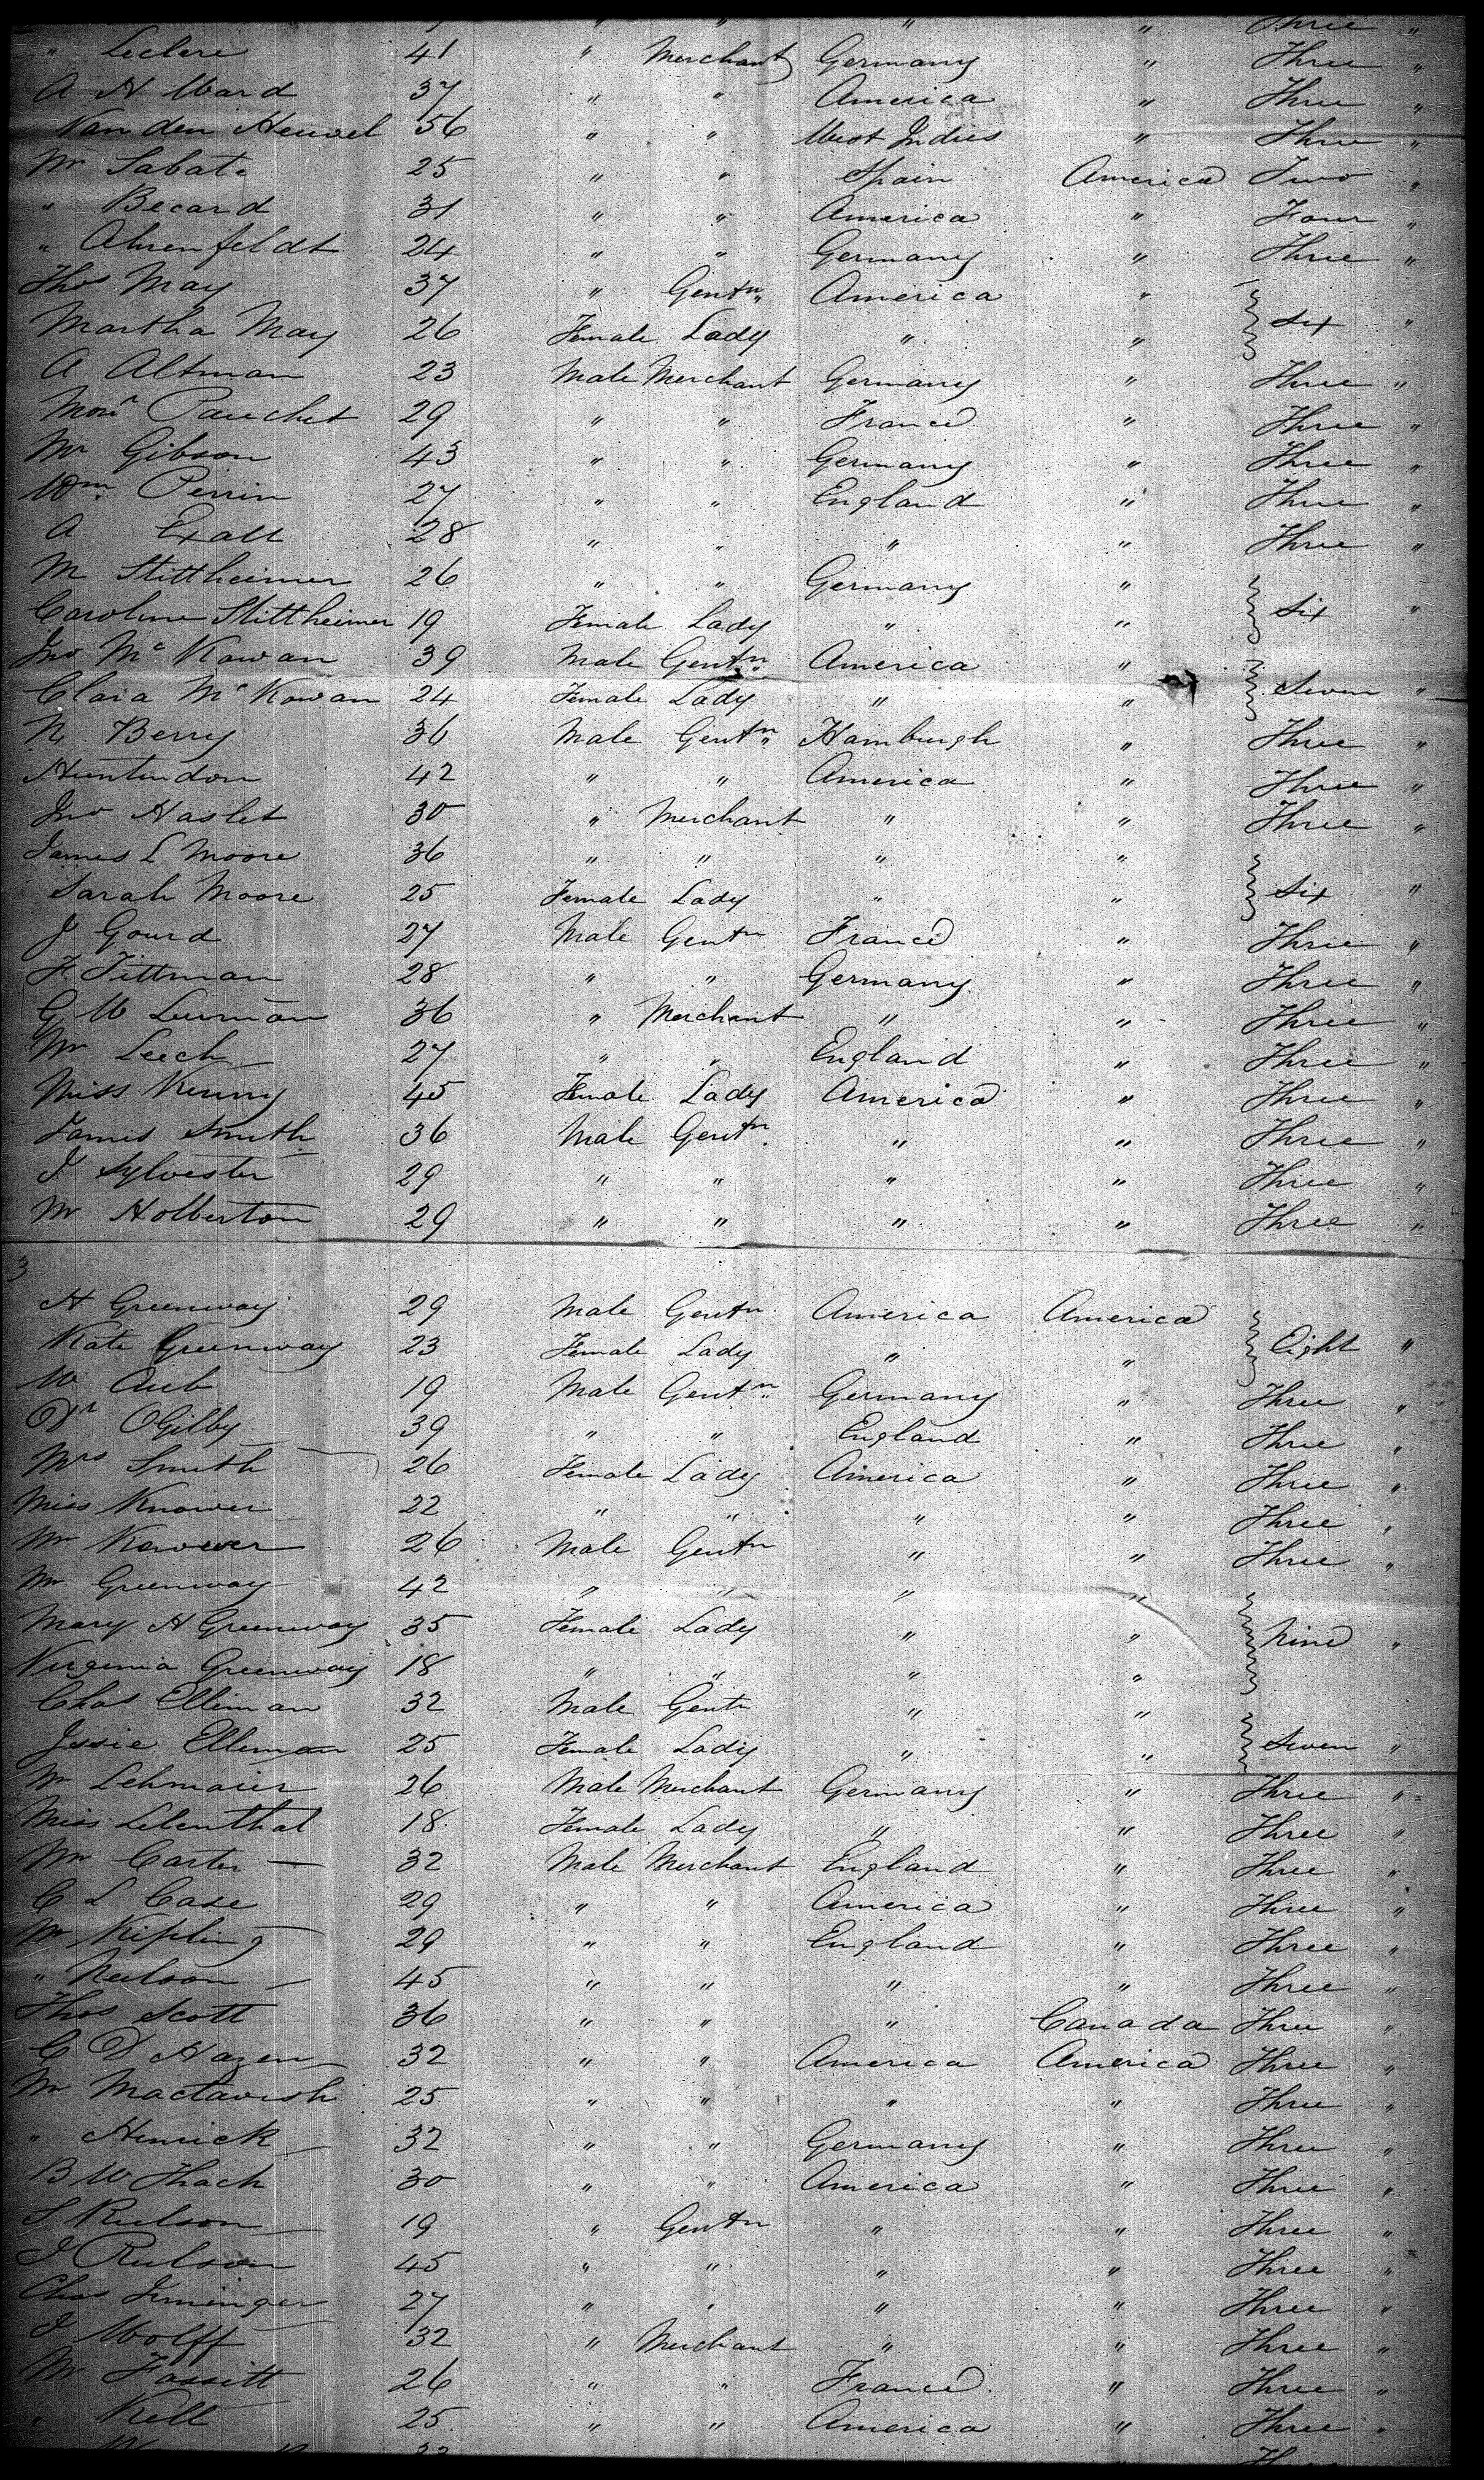 " " " Three "
" Leclere 41 " Merchant Germany " Three "
A H Ward 37 " " America " Three "
Van den Heuvel 56 " " West Indies " Three "
Mr Sabate 25 " " Spain America Two "
" Becard 31 " " America " Four "
" Ahrenfeldt 24 " " Germany " Three "
Thos May 37 " Gentn America "
Martha May 26 Female Lady " " Six "
A Altman 23 Male Merchant Germany " Three "
Monr Pauchet 29 " " France " Three "
Mr Gibson 43 " " Germany " Three "
Wm Perrin 27 " " England " Three "
A Exall 28 " " " " Three "
M Stittheimer 26 " " Germany "
Caroline Stittheimer 19 Female Lady " " Six "
Jno Mc Kowan 39 Male Gentn America "
Clara Mc Kowan 24 Female Lady " " Seven "
N Berry 36 Male Gentn Hamburgh " Three "
Huntindon 42 " " America " Three "
Jno Haslet 30 " Merchant " " Three "
James L Moore 36 " " " "
Sarah Moore 25 Female Lady " " Six "
J Gourd 27 Male Gentn France " Three "
F. Tittman 28 " " Germany " Three "
G W Lurman 36 " Merchant " " Three "
Mr Leech 27 " " England " Three "
Miss Kenny 45 Female Lady America " Three "
James Smith 36 Male Gentn " " Three "
J Sylvester 29 " " " " Three "
Mr Holberton 29 " " " " Three "
3
H Greenway 29 Male Gentn America America
Kate Greenway 23 Female Lady " " Eight "
W Aub 19 Male Gentn Germany " Three "
Dr OGilby 39 " " England " Three "
Mrs Smith 26 Female Lady America " Three "
Miss Knower 22 " " " " Three "
Mr Kowever 26 Male Gentn " " Three "
Mr Greenway 42 " " " "
Mary H Greenway 35 Female Lady " " Nine "
Virginia Greenway 18 " " " "
Chas Elliman 32 Male Gentn " "
Jessie Elleman 25 Female Lady " " Seven "
Mr Lehmaier 26 Male Merchant Germany " Three "
Miss Lilenthal 18 Female Lady " " Three "
Mr Carter 32 Male Merchant England " Three "
C L Case 29 " " America " Three "
Mr Kipling 29 " " England " Three "
" Neilson 45 " " " " Three "
Thos Scott 36 " " " Canada Three "
C D Hazen 32 " " America America Three "
Mr Mactavish 25 " " " " Three "
" Henrick 32 " " Germany " Three "
B W Thach 30 " " America " Three "
S Rulson 19 " Gentn " " Three "
J Rulson 45 " " " " Three "
Chas Iminger 27 " " " " Three "
J Wolff 32 " Merchant " " Three "
Mr Fassitt 26 " " France " Three "
" Kell 25 " " America " Three "